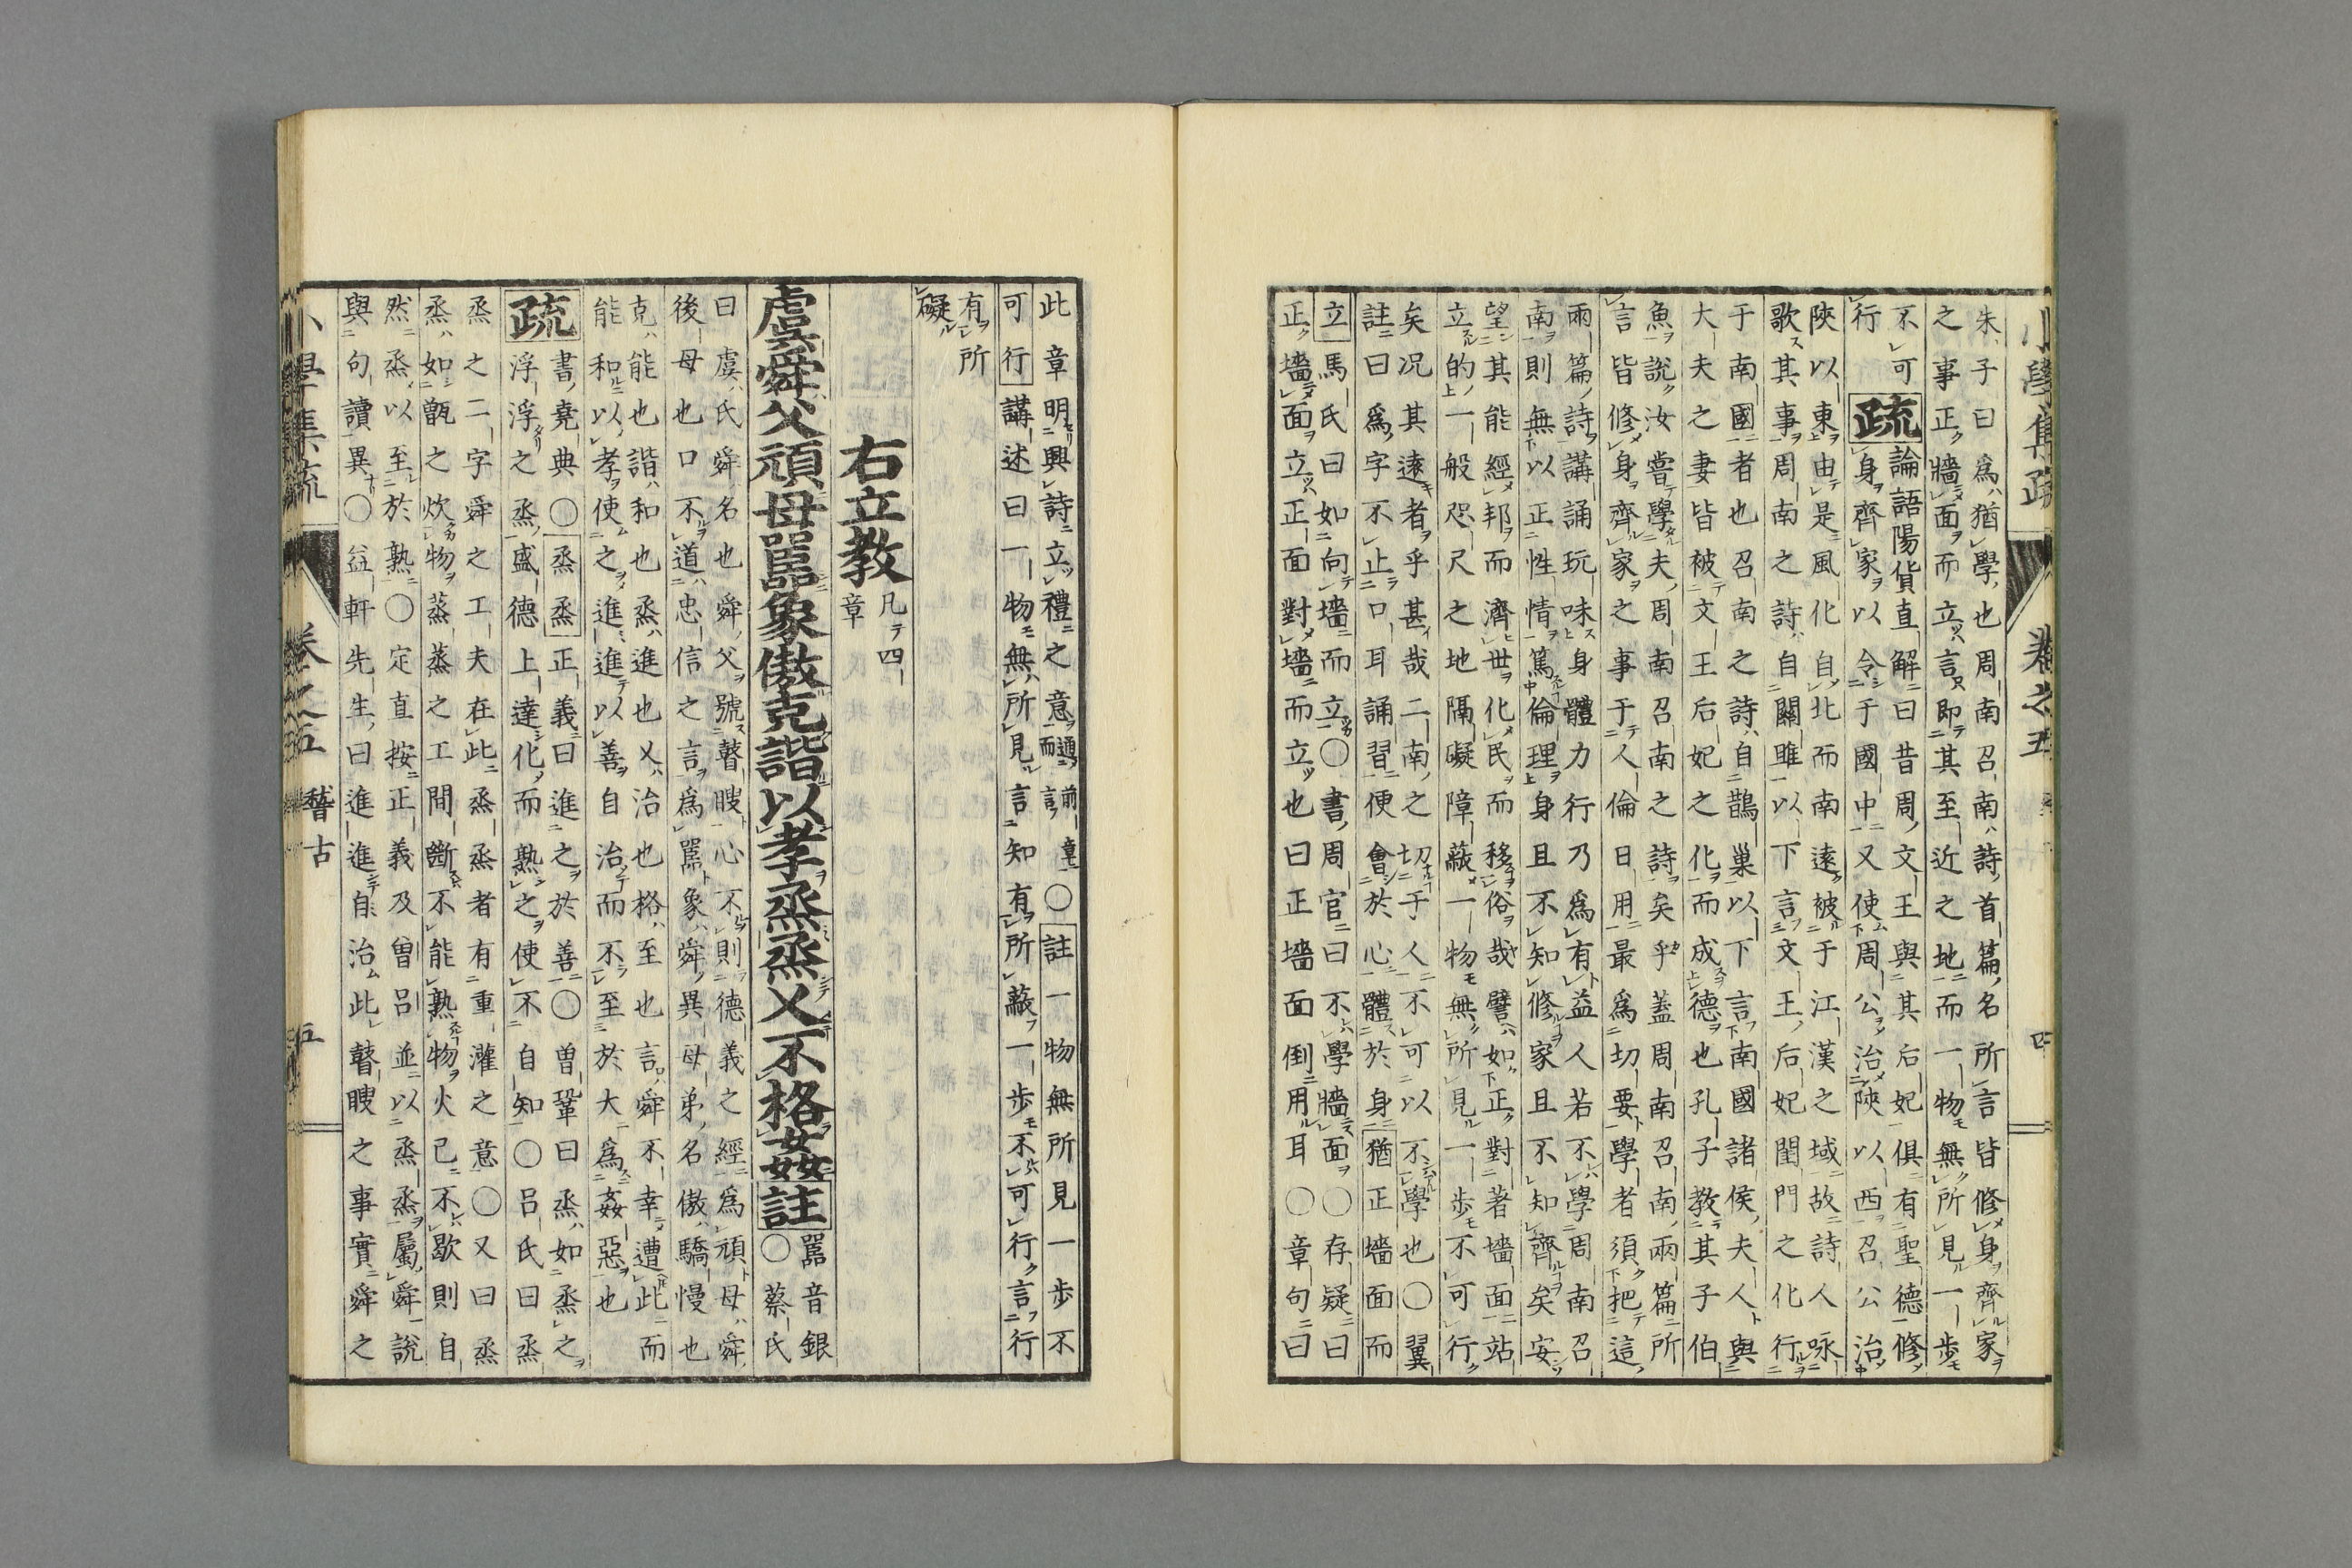 朱子曰爲猶學也周南召南詩首篇名所言皆修身齊家
之事正牆面而立言即其至近之地而一物無所見一步
不可
行
疏
論語陽貨直解曰昔周文王與其后妃俱有聖德修
身齊家以令于國中又使周公治陝以西召公治
陝以東由是風化自北而南遠被于江漢之域故詩人咏
歌其事周南之詩自關雎以下言文王后妃閨門之化行
于南國者也召南之詩自鵲巢以下言南國諸侯夫人與
大夫之妻皆被文王后妃之化而成德也孔子教其子伯
魚說汝嘗學夫周南召南之詩矣乎蓋周南召南兩篇所
言皆修身齊家之事于人倫日用最爲切要學者須把這
兩篇詩講誦玩味身體力行乃爲有益人若不學周南召
南則無以正性情篤倫理身且不知修家且不知齊矣安
望其能經邦而濟世化民而移俗哉譬如正對著墻面站
立的一般咫尺之地隔礙障蔽一物無所見一步不可行
矣况其遠者乎甚哉二南之切于人不可以不學也○翼
註曰爲字不止口耳誦習便會於心體於身猶正墻面而
立馬氏曰如向墻而立○書周官曰不學牆面○存疑曰
正墻面立正面對墻而立也曰正墻面倒用耳○章句曰
此章明興詩立禮之意而通前章言○註一物無所見一步不
可行講述曰一物無所見言知有所蔽一步不可行言行
有所
礙
右立教
凡四
章
虞舜父頑母嚚象傲克諧以孝烝烝乂不格姦註
嚚音銀
○蔡氏
曰虞氏舜名也舜父號瞽瞍心不則德義之經爲頑母舜
後母也口不道忠信之言爲嚚象舜異母弟名傲驕慢也
克能也諧和也烝進也乂治也格至也言舜不幸遭此而
能和以孝使之進進以善自治而不至於大爲姦惡也
疏
書堯典○烝烝正義曰進之於善○曾鞏曰烝如烝之
浮浮之烝盛德上達化而熟之使不自知○呂氏曰烝
烝之二字舜之工夫在此烝烝者有重灌之意○又曰烝
烝如甑之炊物蒸蒸之工間斷不能熟物火已不歇則自
然烝以至於熟○定直按正義及曽呂並以烝烝屬舜說
與句讀異○益軒先生曰進進自治此瞽瞍之事實舜之
小學集疏 卷之五 稽古 五
小學集疏 卷之五 四